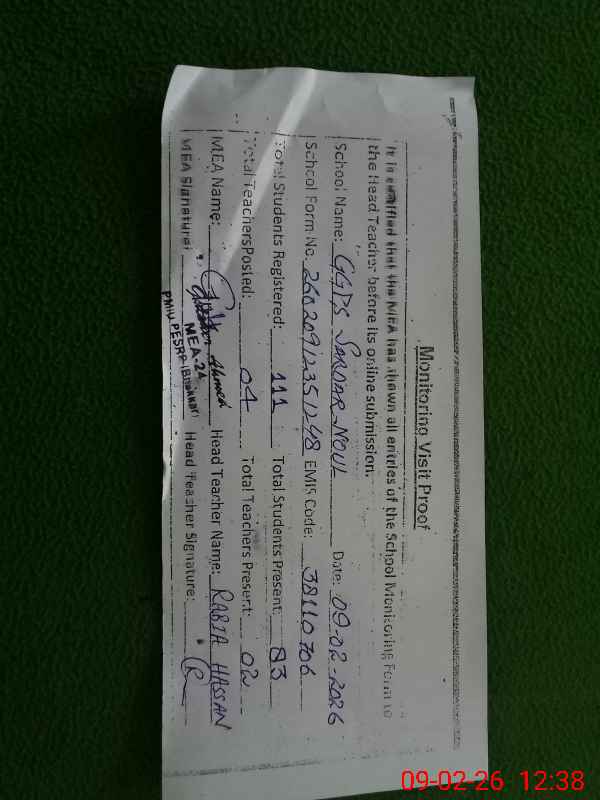 Monitoring Visit Proof
It is certified that the MEA has shown all entries of the School Monitoring Form to
the Head Teacher before its online submission.
School Name: GGPS SARDAR NOUL Date: 09-02-2026
School Form No. 26020912351248 EMIS Code: 38110706
Total Students Registered: 111 Total Students Present: 83
Total Teachers Posted: 04 Total Teachers Present: 02
MEA Name: Ahmed Head Teacher Name: RABIA HASSAN
MEA Signature: Head Teacher Signature:
MEA-24
PMIU PESRP (Bhakkar)
09-02-26 12:38